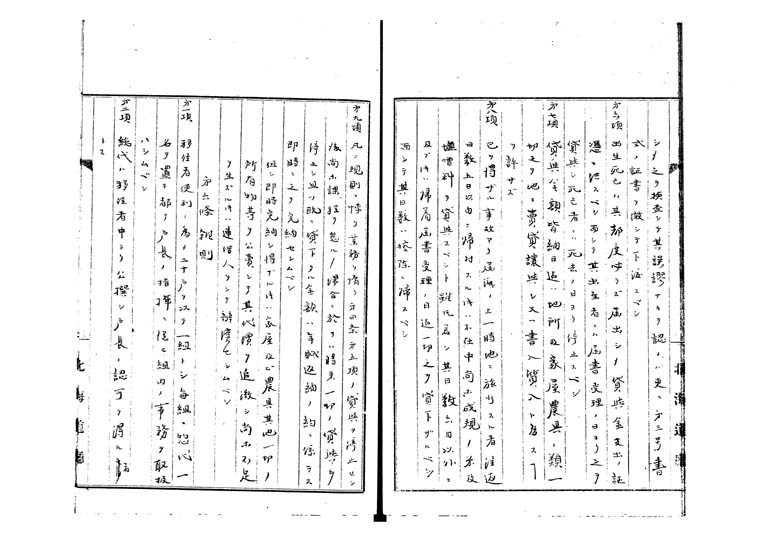 シメ之ヲ検査シテ其誤謬ナキヲ認ムレバ更ニ第三号書
式ノ証書ヲ徴シテ下渡スベシ
第六項 出生死亡ハ其都度必ラズ届出シメ貸与金支出ノ証
憑ニ供スベシ而シテ其出生者ハ届書受理ノ日ヨリ之ヲ
貸与シ死亡者ハ死去ノ日ヨリ停止スベシ
第七項 貸与金額皆納日迄ハ地所及家屋農具ノ類一
切之ヲ他ニ売買譲与シ又ハ書入質入ト為スヿ
ヲ許サズ
第八項 已ヲ得ザル事故アリ届済ノ上一時他ニ旅行スル者往返
日数五日以内ニ帰村スルトキハ不在中尚ホ成規ノ米及
塩菜料ヲ貸与スベシト雖𪜈若シ其日数六日以外ニ
及ブトキハ帰届書受理ノ日迄一切之ヲ貸下ザルベシ
而シテ其日数ハ控除ニ帰スベシ
第九項 凡ソ規則ニ悖リ業務ヲ惰リ第四条第五項ノ貸与ヲ停止セシ
後尚ホ課程ヲ怠ル場合ニ於テハ将来一切ノ貸与ヲ
停止シ且ツ既ニ貸下タル金額ハ年賦返納ノ約ニ係ラズ
即時ニ之ヲ完納セシムベシ
但シ即時完納シ得ザルトキハ家屋及ビ農具其他一切ノ
所有物等ヲ公売シテ其代償ヲ追徴シ尚ホ不足
ヲ生ズルトキハ連借人ヲシテ弁償セシムベシ
第六條 雑則
第一項 移住者便利ノ為メ二十戸ヲ以テ一組トシ毎組ニ総代一
名ヲ置キ郡戸長ノ指揮ニ従ヒ組内ノ事務ヲ取扱
ハシムベシ
第二項 総代ハ移住者中ヨリ公撰シ戸長ノ認可ヲ得ル者
トス
北海道廳